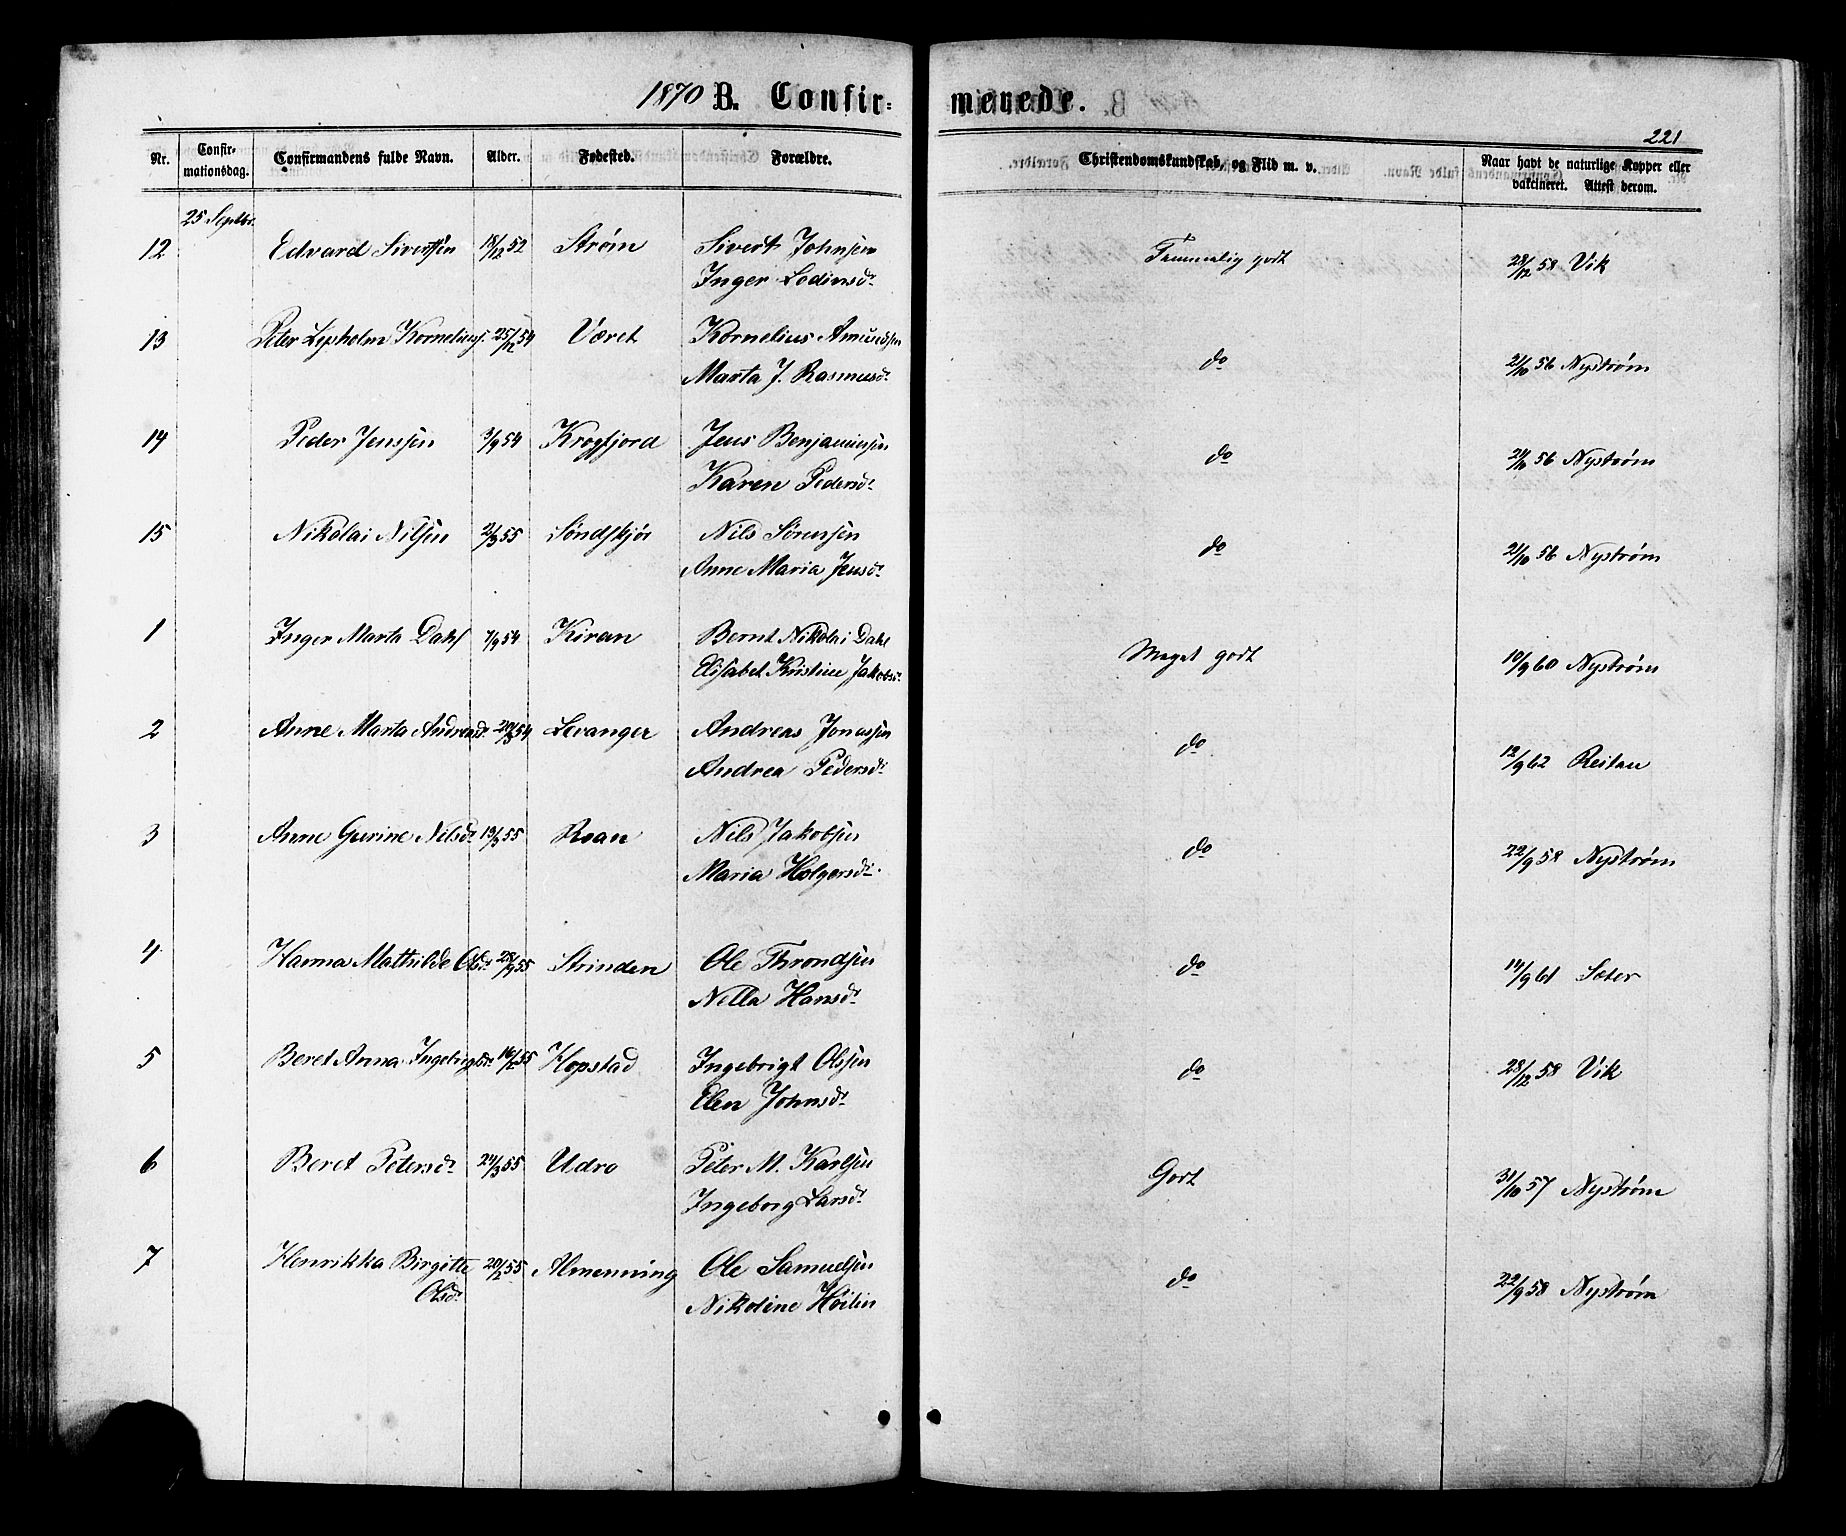 1870 B. Confir= merede.
221
Nr. Confir-mationsdag. Confirmandens fulde Navn. Alder. Fødested. Forældre. Christendomskundskab, og Flid m. v. Naar havt de naturlige Kopper eller vakcineret. Attest derom.
25 Septbr.
12 Edvard Sivertsen 18/12 52 Strøm Sivert Johnsen Temmelig godt 28/12 58 Vik
Inger Lodinsdr
13 Peter Kornelius. 25/12 54 Været Kornelius Amundsen do 21/10 56 Nystrøm
Marta J. Rasmusdr
14 Peder Jenssen 3/9 54 Krogfjord Jens Benjaminsen do 21/10 56 Nystrøm
Karen Pedersdr
15 Nikolai Nilsen 2/3 55 Nils Sørensen do 21/10 56 Nystrøm
Anne Maria Jensdr
1 Inger Marta Dahl 7/9 54 Kiran Bernt Nikolai Dahl Meget godt 10/9 60 Nystrøm
Elisabet Kristine Jakobsdr
2 Anne Marta Andreasdr 54 Levanger Andreas Jonassen do 12/9 62 Reitan
Andrea Pedersdr
3 Anne Gurine Nilsdr 13/3 55 Roan Nils Jakobsen do 22/9 58 Nystrøm
Maria Holgersdr
4 Hanna Mathilde Olsdr 28/9 55 Strinden Ole Throndsen do 14/9 61 Sæter
Nella Hansdr
5 Beret Anna Ingebrigtsdr 16/2 55 Hopstad Ingebrigt Olsen do 28/12 58 Vik
Elen Johnsdr
6 Beret Petersdr 24/3 55 Udro Peter M. Karlsen Godt 31/10 57 Nystrøm
Ingeborg Larsdr
7 Henrikka Birgitte 20/2 55 Almenning Ole Samuelsen do 22/9 58 Nystrøm
Olsdr Nikoline Høilin